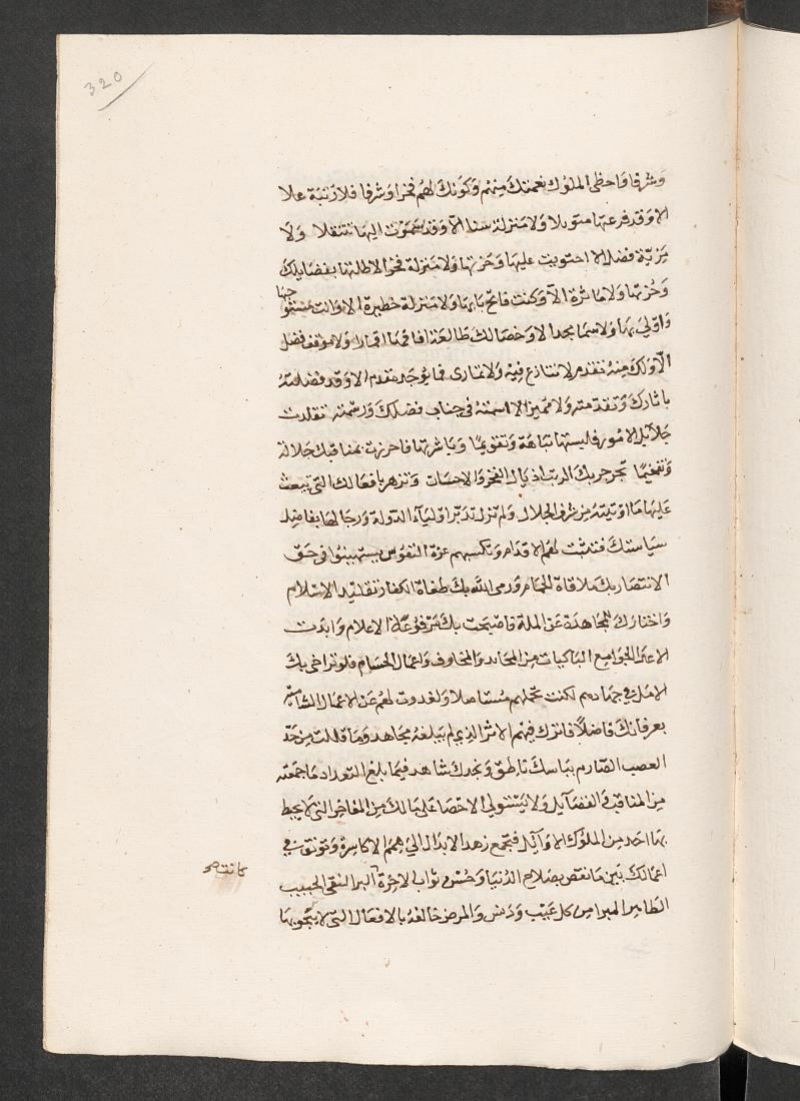 320
وشرفا واحظى الملوك بغمتك منهم وكونك لهم فخرا وشرفا فلا رتبة علا
الا وقد فرعتها متوبلا ولا منزلة سنا الا وقد سموت اليها متنقلا ولا
مزية فضل الا احتويت عليها وحزتها ولا منزلة فخر الا طلتها بفضايلك
وحزتها ولا ماثرة الا وكنت فاتح بابها ولا منزلة خطيرة الا وانت
جبها
واولى بها ولا سما مجد الا وخصالك طالعة افاقها اقمارا ولا موقف فضل
الا ولك منه تقدم لا تنازع فيه ولا تمارى فما يوجد مقدم الا وقد فضلته
باثارك وتقدمته ولا مميز الا اسمته في جناب فضلك ورسمته تقلدت
جلائل الامور فالبستها نباهة وتقويما وباشرتها فاحرزت بمناقبك جلالة
وتفخيما تجر بك الرتب اذيال الفخر والاحسان وتزهر بافعالك التي تبعث
عليها ما اوتيته من شرف الجلال ولم تزل تدبر اولياء الدولة ورجالها بفاضل
سياستك فتثبت لهم الاقدام وتكسبهم عزة النفوس يستهينوا في حق
الانتصار بك ملاقاة الحمام ورمى الله بك طغاة الكفار تقليد الاسلام
واختارك للمجاهدة عن الملة فاصبحت بك مرفوعة الاعلام وابدت
الاعتزا الجوامع الباكيات من المحاند والمخاوف واعمال الحسام فلو تراخى بك
الامل في جهادهم لكنت لحملهم مستاصلا ولغدوت لهم عن الاعمال الشامية
بعرفانك فاضلا فاترك فيهم الاثر الذي لم يبلغه مجاهد وما فللت من حد
العصب الصارم بباسك ناطق ونجدك شاهد فيما بلغ التعداد ما جمعته
من المناقب والفضايل ولا يستولي الاحصا على مالك من المفاخر التي لا يحط
بها احد من الملوك الاوايل فتجمع زهد الابدال الى همم الاكاسرة وتوثق في
اعمالك بين ما نقص بصلاح الدنيا وحسن ثواب الاخرة البر التقي الحبيب
كانت صح
الطاهر المبرا من كل عيب ودنس والمرض خالقه بالافعال التي لا ينجو بها